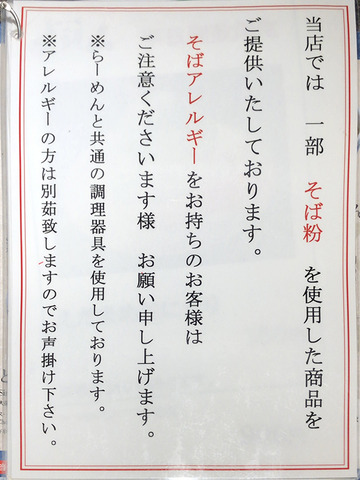 当店では 一部 そば粉 を使用した商品を
ご提供いたしております。
そばアレルギーをお持ちのお客様は
ご注意くださいます様 お願い申し上げます。
※らーめんと共通の調理器具を使用しております。
※アレルギーの方は別茹致しますのでお声掛け下さい。